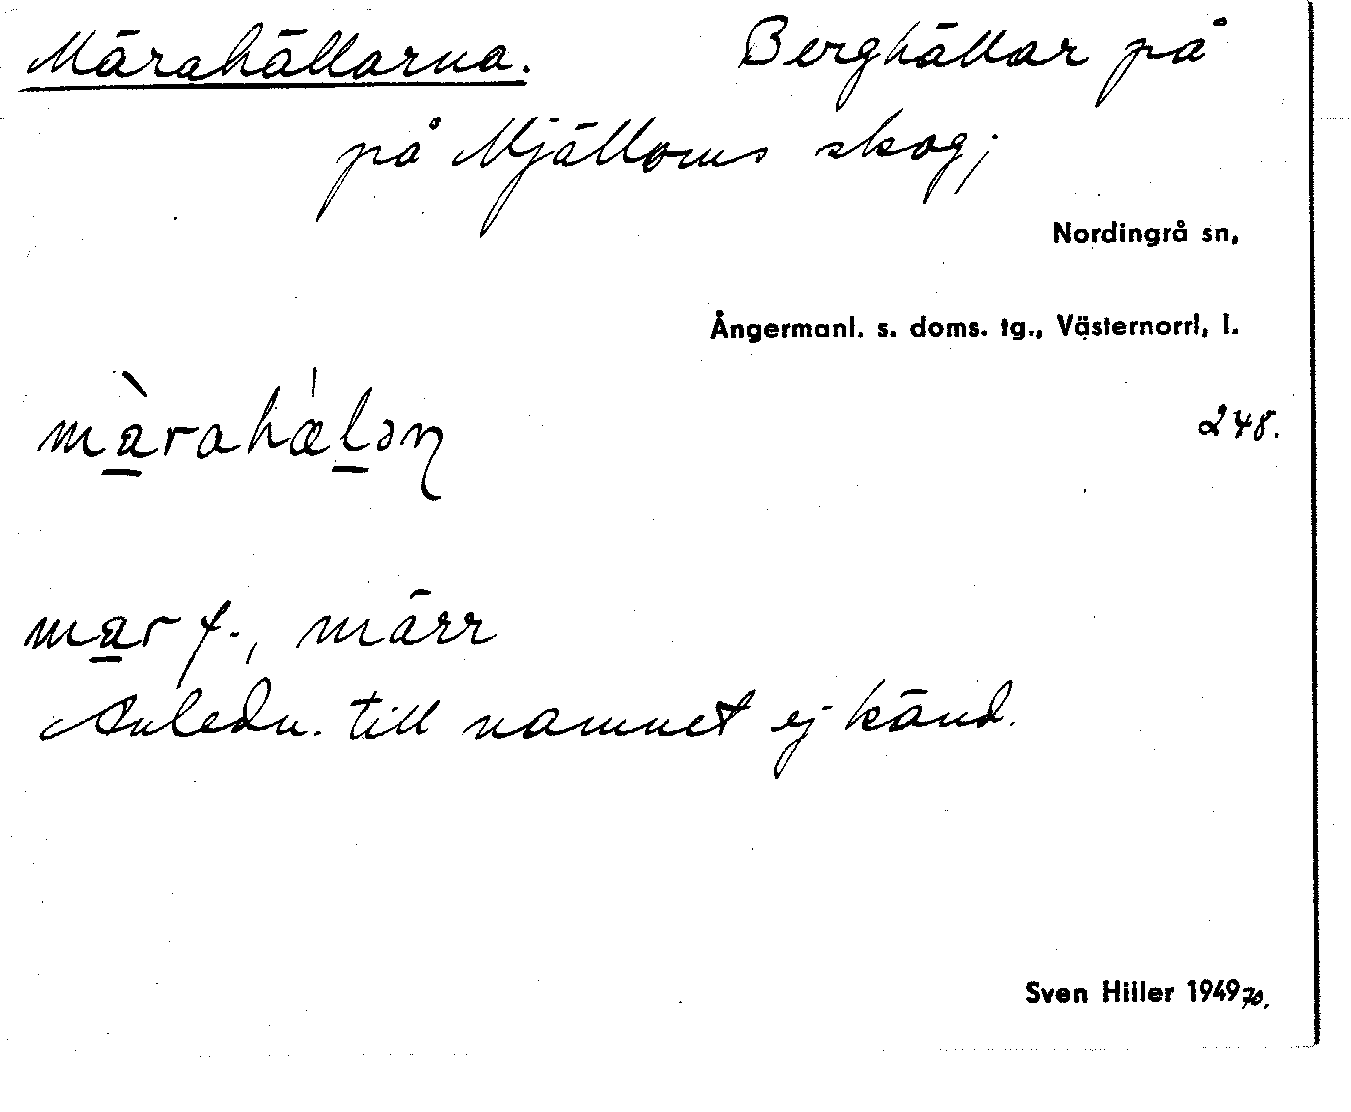 Märahällarna. Berghällar på
på Mjälloms skog;
Nordingrå sn,
Ångermanl. s. doms. tg., Västernorrl. l.
màrahælən
248.
mar f., märr
Anledn. till namnet ej känd.
Sven Hiller 1949